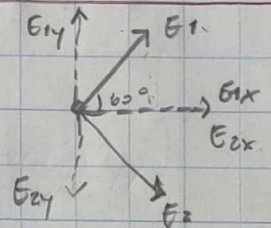 E1y
E1.
60°
E1x
E2x
E2y
E2